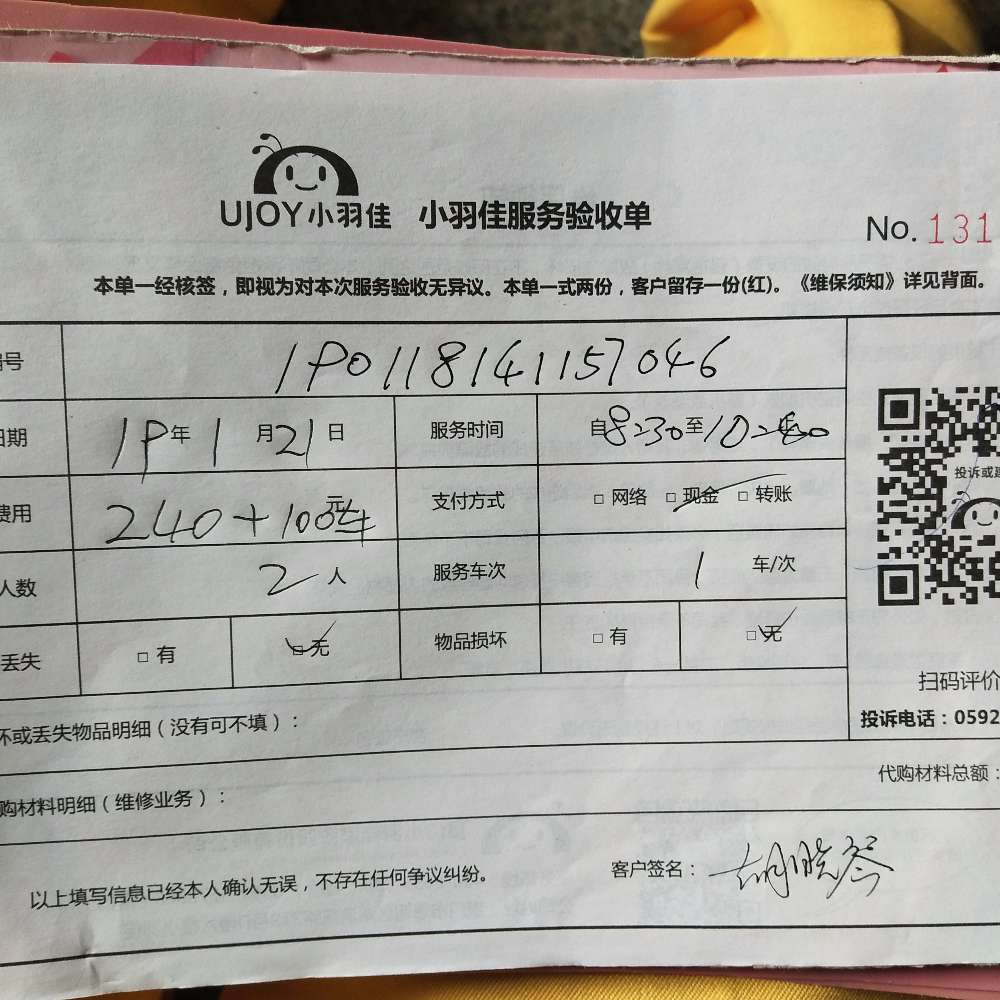 UJOY小羽佳 小羽佳服务验收单
No.131
本单一经核签，即视为对本次服务验收无异议。本单一式两份，客户留存一份(红)。《维保须知》详见背面。
号 190118141157046
日期 19年1月21日 服务时间 自8:30至10:
费用 240+100元车 支付方式 □网络 □现金 □转账
人数 2人 服务车次 1车/次
丢失 □有 □无 物品损坏 □有 □无
投诉或
扫码评价
投诉电话：0592
坏或丢失物品明细（没有可不填）：
代购材料总额：
购材料明细（维修业务）：
以上填写信息已经本人确认无误，不存在任何争议纠纷。
客户签名：胡晓琴